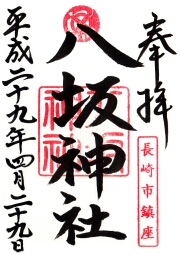 奉拝
長崎市鎮座
八坂神社
平成二十九年四月二十九日